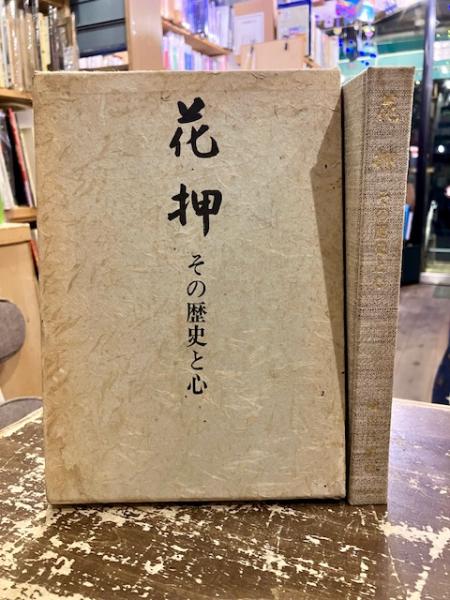 花押
その歴史と心
花押
その歴史と心